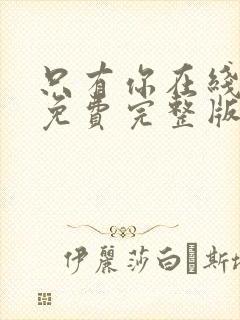 只有你在线
免费完整版
伊丽莎白 斯